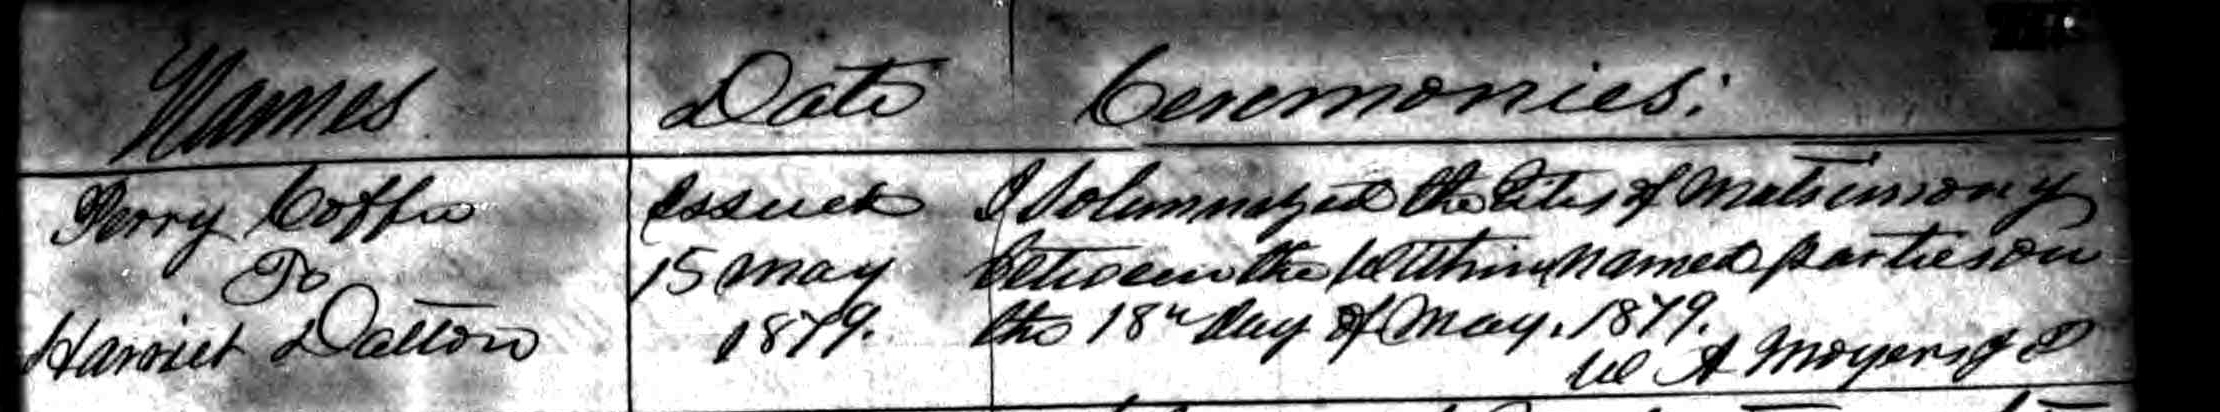 Names Date Ceremonies:
Perry Coffee Issued I Solemnized the Rites of Matrimony
To 15 May between the Within named parties on
Harriet Dalton 1879. the 18th day of May, 1879.
W A Moyers J P